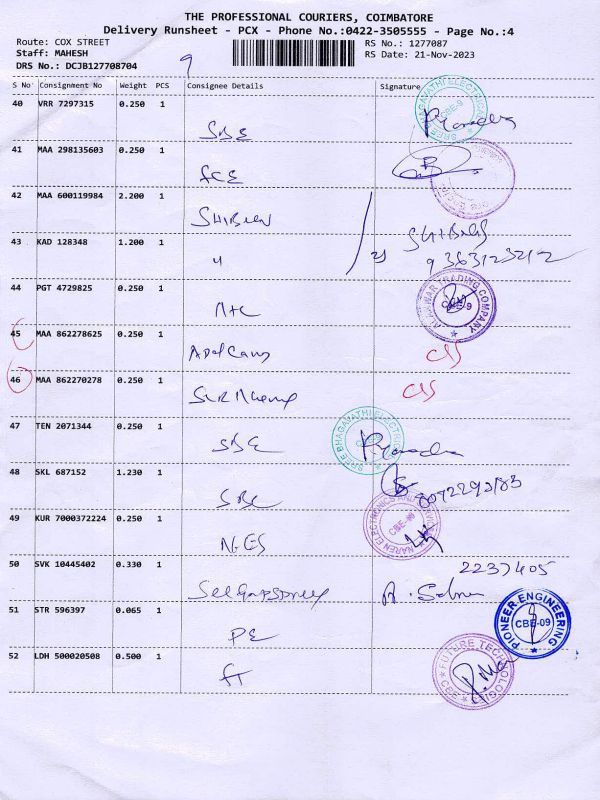 THE PROFESSIONAL COURIERS, COIMBATORE
Delivery Runsheet - PCX - Phone No.:0422-3505555 - Page No.:4
Route: COX STREET RS No.: 1277087
Staff: MAHESH RS Date: 21-Nov-2023
DRS No.: DCJB127708704
9
S No Consignment No Weight PCS Consignee Details Signature
40 VRR 7297315 0.250 1
SBE
SREE BHAGAVATHI ELECTRICALS CBE-9
41 MAA 298135603 0.250 1
42 MAA 600119984 2.200 1
43 KAD 128348 1.200 1
9363123212
44 PGT 4729825 0.250 1
ALANKAR TRADING COMPANY CBE-9
45 MAA 862278625 0.250 1
46 MAA 862270278 0.250 1
47 TEN 2071344 0.250 1
SBE
SREE BHAGAVATHI ELECTRICALS
48 SKL 687152 1.230 1
SBE
49 KUR 7000372224 0.250 1
NES
NAREN ELECTRONICS AND SERVICE CBE-09
50 SVK 10445402 0.330 1
2237405
51 STR 596397 0.065 1
PE
PIONEER ENGINEERING CBE-09
52 LDH 500020508 0.500 1
FT
FUTURE TECHNOLOGIES CBE